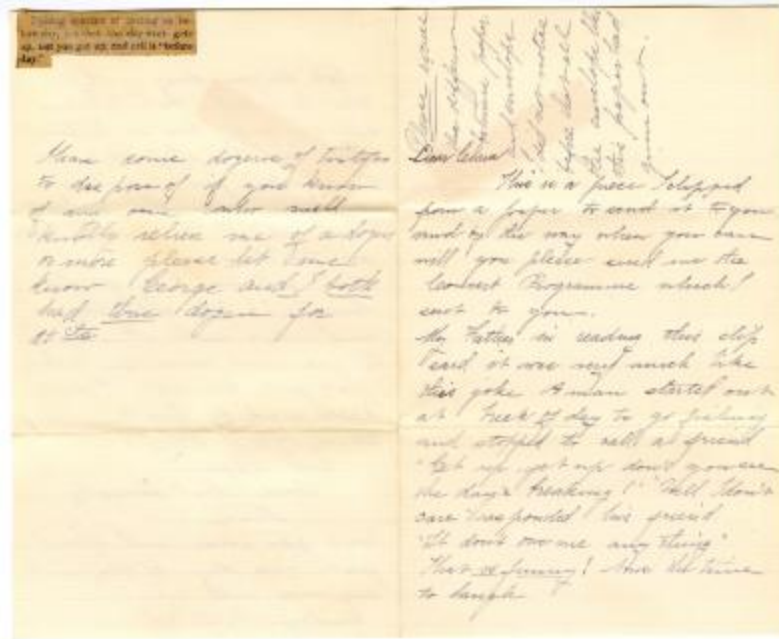 up, but you get up, and call it "before
day."
Have some dozens of tintypes
to dispose of if you know
of any one who will
kindly relieve me of a dozen
or more please let me
know George and I both
had three dozen for
Please excuse
the difference
between paper
and envelope
I did not notice
before that all
the envelopes like
this paper had
given out.
Dear
This is a piece I clipped
from a paper to send it to you
and by the way when you can
will you please send me the
Concert Programme which I
sent to you.
My Father in reading this slip
said it was very much like
this joke A man started out
at break of day to go fishing
and stopped to call a friend
"Get up, get up don't you see
the day's breaking!" "Well I don't
care" responded his friend
"It don't owe me any thing"
That is funny! Now is the time
to laugh